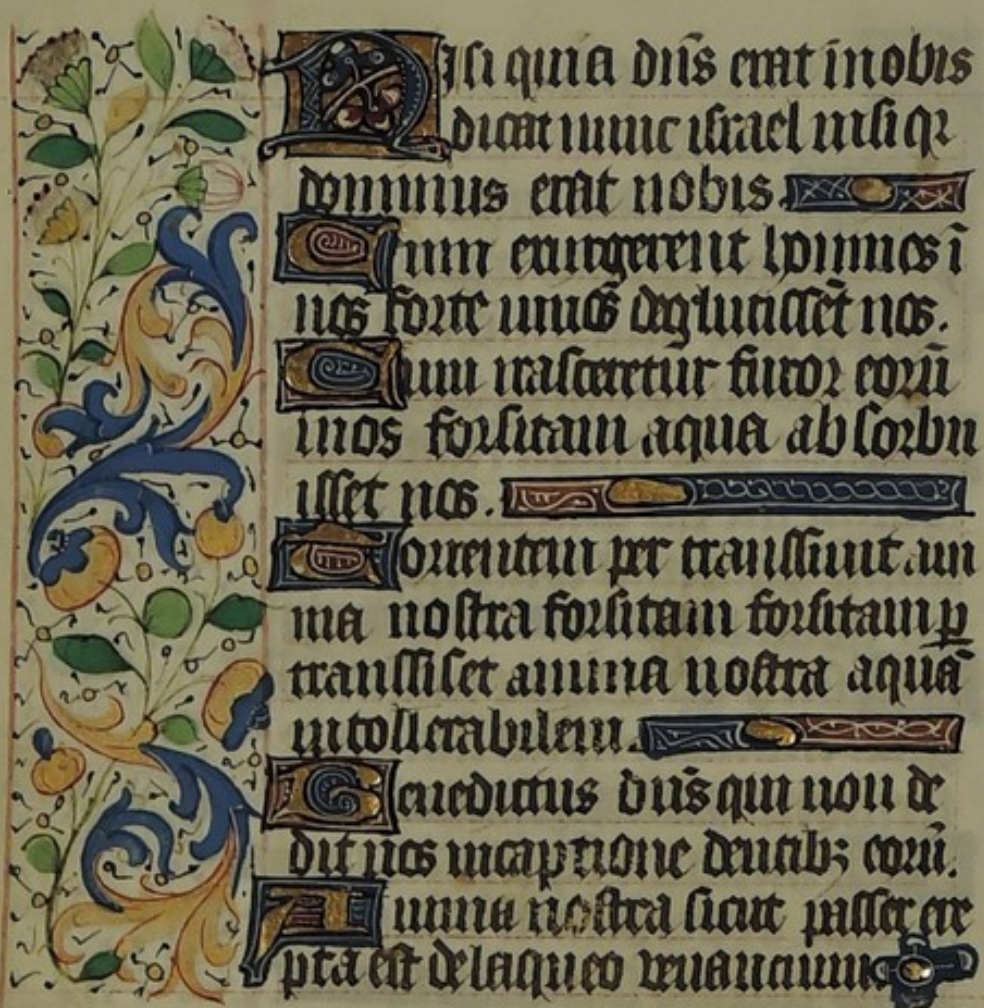 Nisi quia dn̄s erat in nobis
dicat nunc israel nisi qr
dominus erat nobis.
Cum exurgerent homines ī
nos forte vivos deglutissēt nos.
Cum irasceretur furor eorū
in nos forsitam aqua absorbu
isset nos.
Torrentem per transsiuit ani
ma nostra forsitam forsitam ꝑ
transsiset anima nostra aquā
intollerabilem.
Benedictus dn̄s qui non de
dit nos in captione dentibꝫ eorū.
Anima nostra sicut passer ere
pta est de laqueo venancium